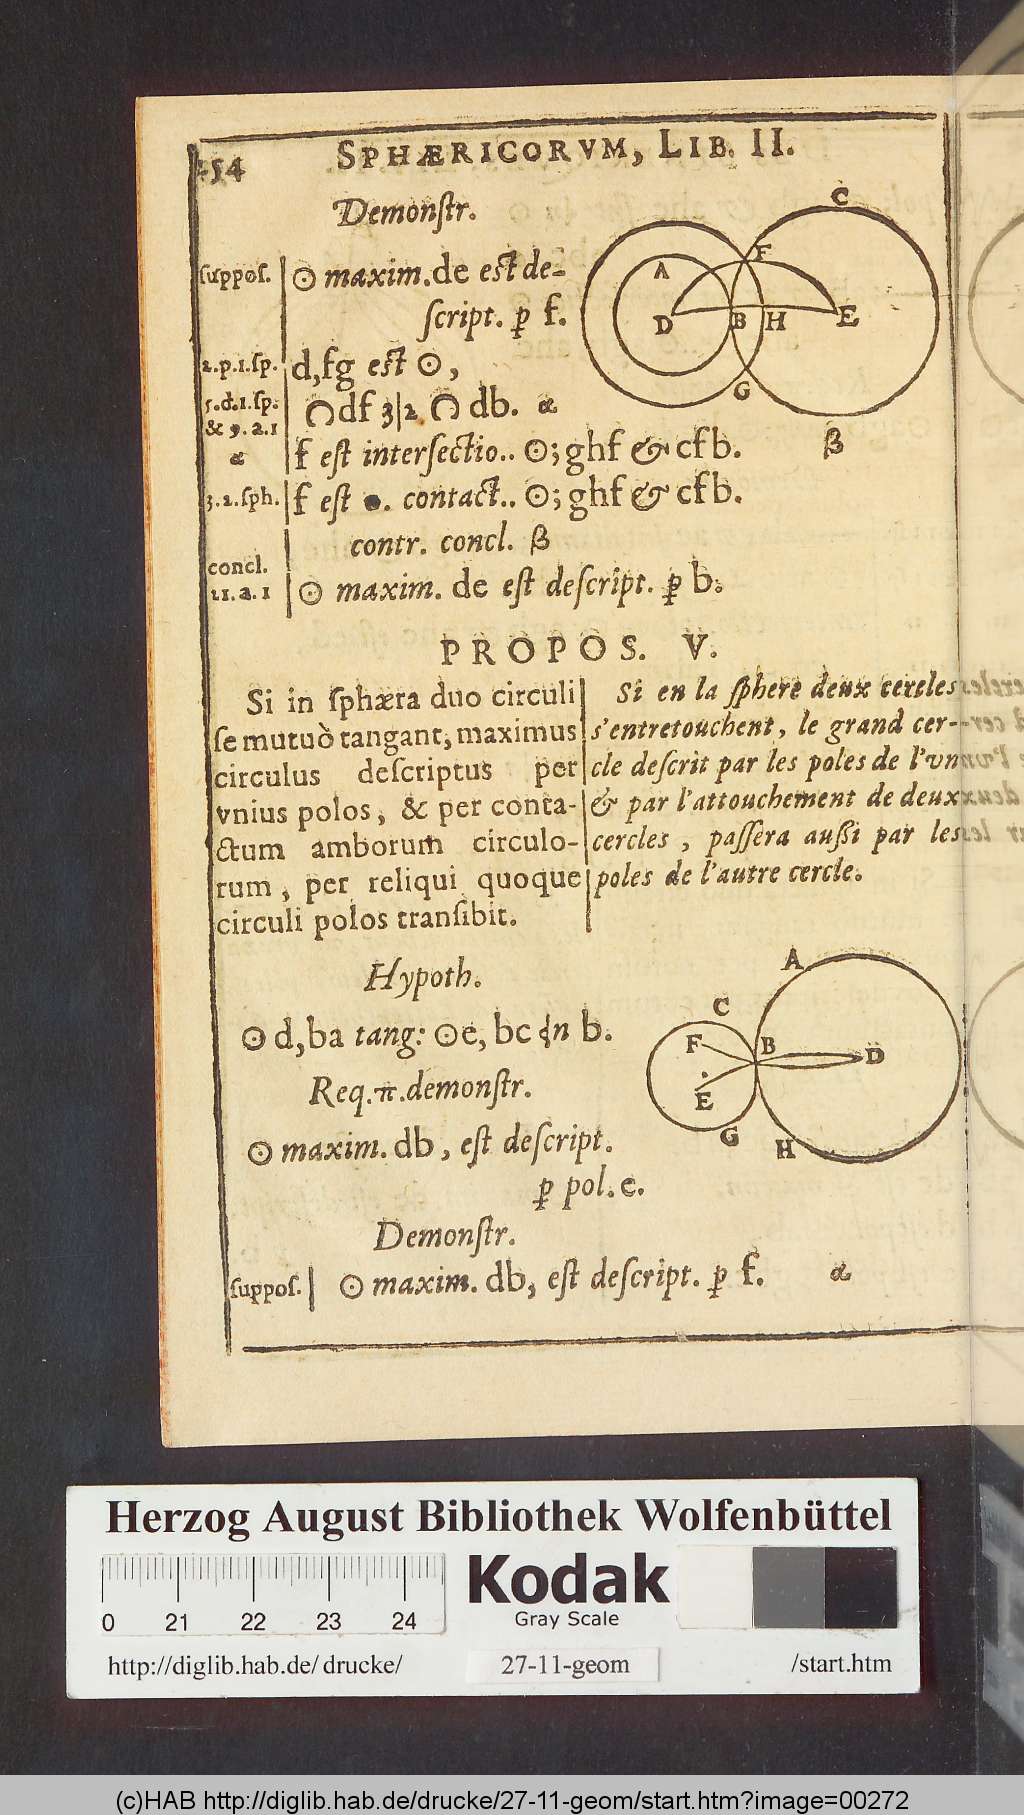 254
SPHÆRICORVM, LIB. II.
Demonſtr.
ſuppoſ. ⊙ maxim. de eſt de-
ſcript. ꝑ f.
2.p.1.ſp. d,fg eſt ⊙,
5.d.1.ſp. ∩ df 3|2 ∩ db. α
& 9.a.1
α f eſt interſectio.. ⊙; ghf & cfb.
3.2.ſph. f eſt ●. contact.. ⊙; ghf & cfb.
contr. concl. β
concl.
21.a.1 ⊙ maxim. de eſt deſcript. ꝑ b.
A
C
F
D
B
H
E
G
β
PROPOS. V.
Si in ſphæra duo circuli
ſe mutuò tangant, maximus
circulus deſcriptus per
vnius polos, & per conta-
ctum amborum circulo-
rum, per reliqui quoque
circuli polos tranſibit.
Si en la ſphere deux cercles
s'entretouchent, le grand cer-
cle deſcrit par les poles de l'vn
& par l'attouchement de deux
cercles, paſſera auſſi par les
poles de l'autre cercle.
Hypoth.
⊙ d,ba tang: ⊙e, bc in b.
Req.π.demonſtr.
⊙ maxim. db, eſt deſcript.
ꝑ pol. e.
A
C
F
B
D
E
G
H
Demonſtr.
ſuppoſ. ⊙ maxim. db, eſt deſcript. ꝑ f. α
Herzog August Bibliothek Wolfenbüttel
0 21 22 23 24
Kodak
Gray Scale
http://diglib.hab.de/drucke/ 27-11-geom /start.htm
(c)HAB http://diglib.hab.de/drucke/27-11-geom/start.htm?image=00272